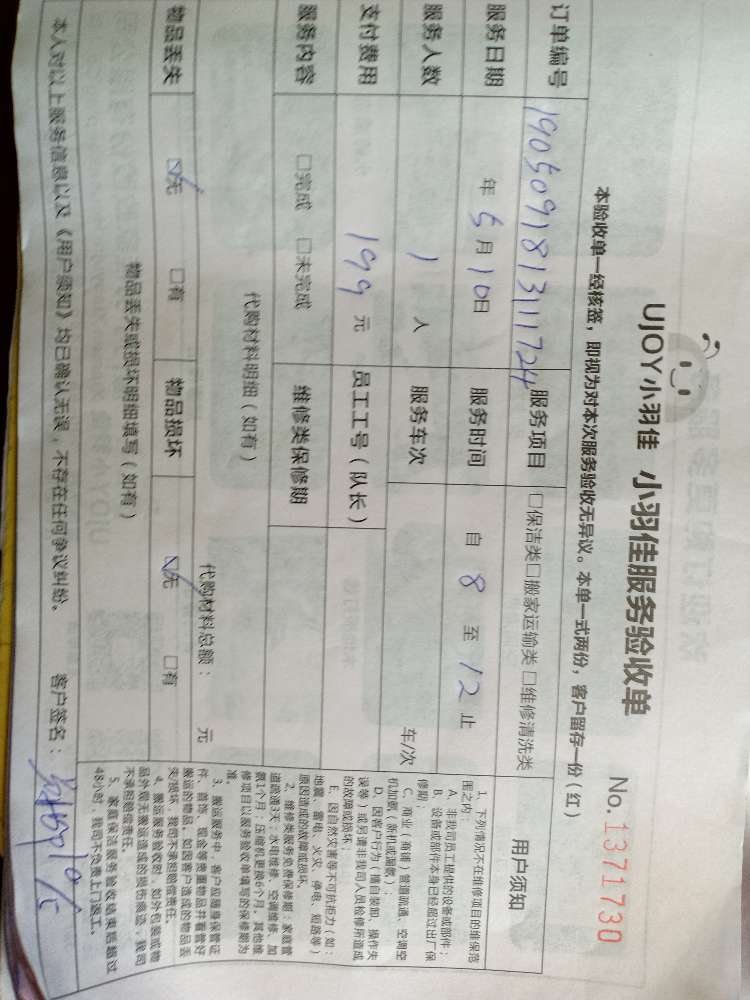 UJOY小羽佳 小羽佳服务验收单
No. 1371730
本验收单一经核签，即视为对本次服务验收无异议。本单一式两份，客户留存一份（红）
订单编号 190509181311724 服务项目 □保洁类□搬家运输类□维修清洗类
服务日期 年 5 月 10 日 服务时间 自 8 至 12 止
服务人数 1 人 服务车次 车/次
支付费用 199 元 员工工号（队长）
服务内容 □完成 □未完成 维修类保修期
代购材料明细（如有）
代购材料总额： 元
物品丢失 ☑无 □有 物品损坏 ☑无 □有
物品丢失或损坏明细填写（如有）
本人对以上服务信息以及《用户须知》均已确认无误，不存在任何争议纠纷。 客户签名：
用户须知
1、下列情况不在维修项目的维保范
围之内：
A、非我司员工提供的设备或部件；
B、设备或部件本身已经超过出厂保
修期；
C、商业（商铺）管道疏通、空调空
机加氨（新机或漏氨）；
D、因客户行为（擅自装卸、操作失
误等）或另请非我司人员检修所造成
的故障或损坏；
E、因自然灾害等不可抗拒力（如：
地震、雷电、火灾、停电、短路等）
原因造成的故障或损坏。
2、维修类服务免费保修期：家庭管
道疏通3天；水电维修、空调维修、加
氨1个月；压缩机更换6个月。其他维
修项目以服务验收单填写的保修期为
准。
3、搬运服务中，客户应随身保管证
件、首饰、现金等贵重物品并看管好
搬运的物品。如因客户造成的物品丢
失/损坏，我司不承担赔偿责任。
4、搬运服务验收时，如外包装或物
品外观无搬运造成的损伤痕迹，我司
不承担赔偿责任。
5、家庭保洁服务验收结束后超过
48小时，我司不负责上门返工。